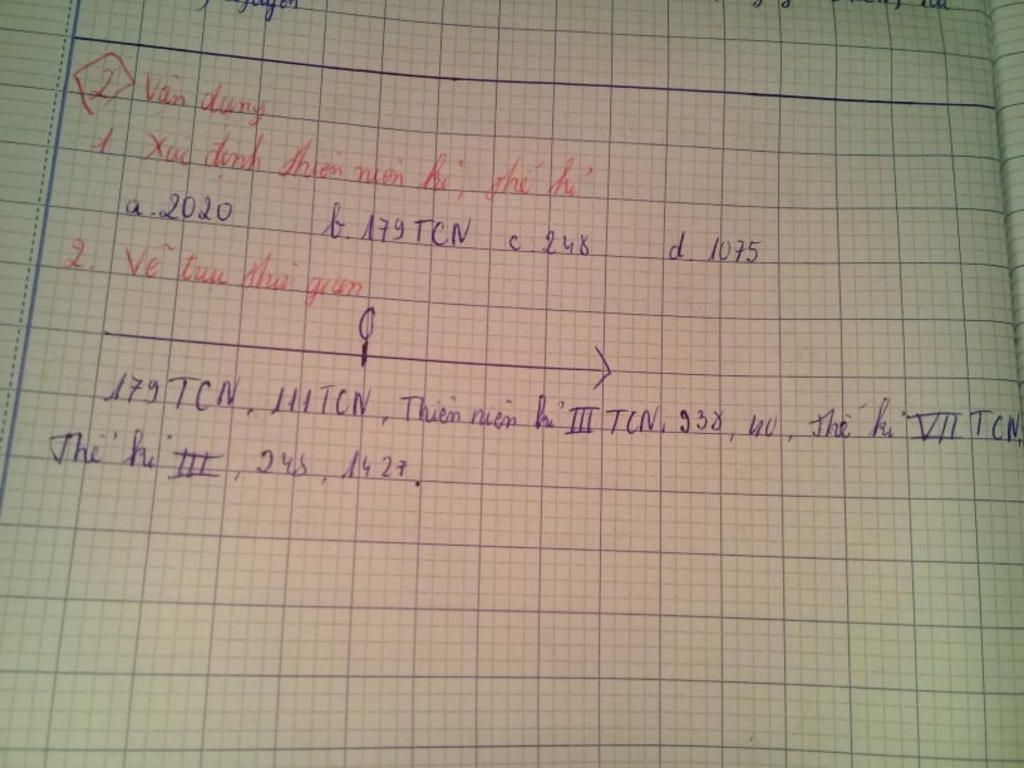 2 Vận dụng
1 Xác định thiên niên kỉ, thế kỉ
a. 2020 b. 179 TCN c 248 d. 1075
2. Vẽ trục thời gian
0
179 TCN, 111 TCN, Thiên niên kỉ III TCN, 938, 40, Thế kỉ VII TCN,
Thế kỉ III, 248, 1427.